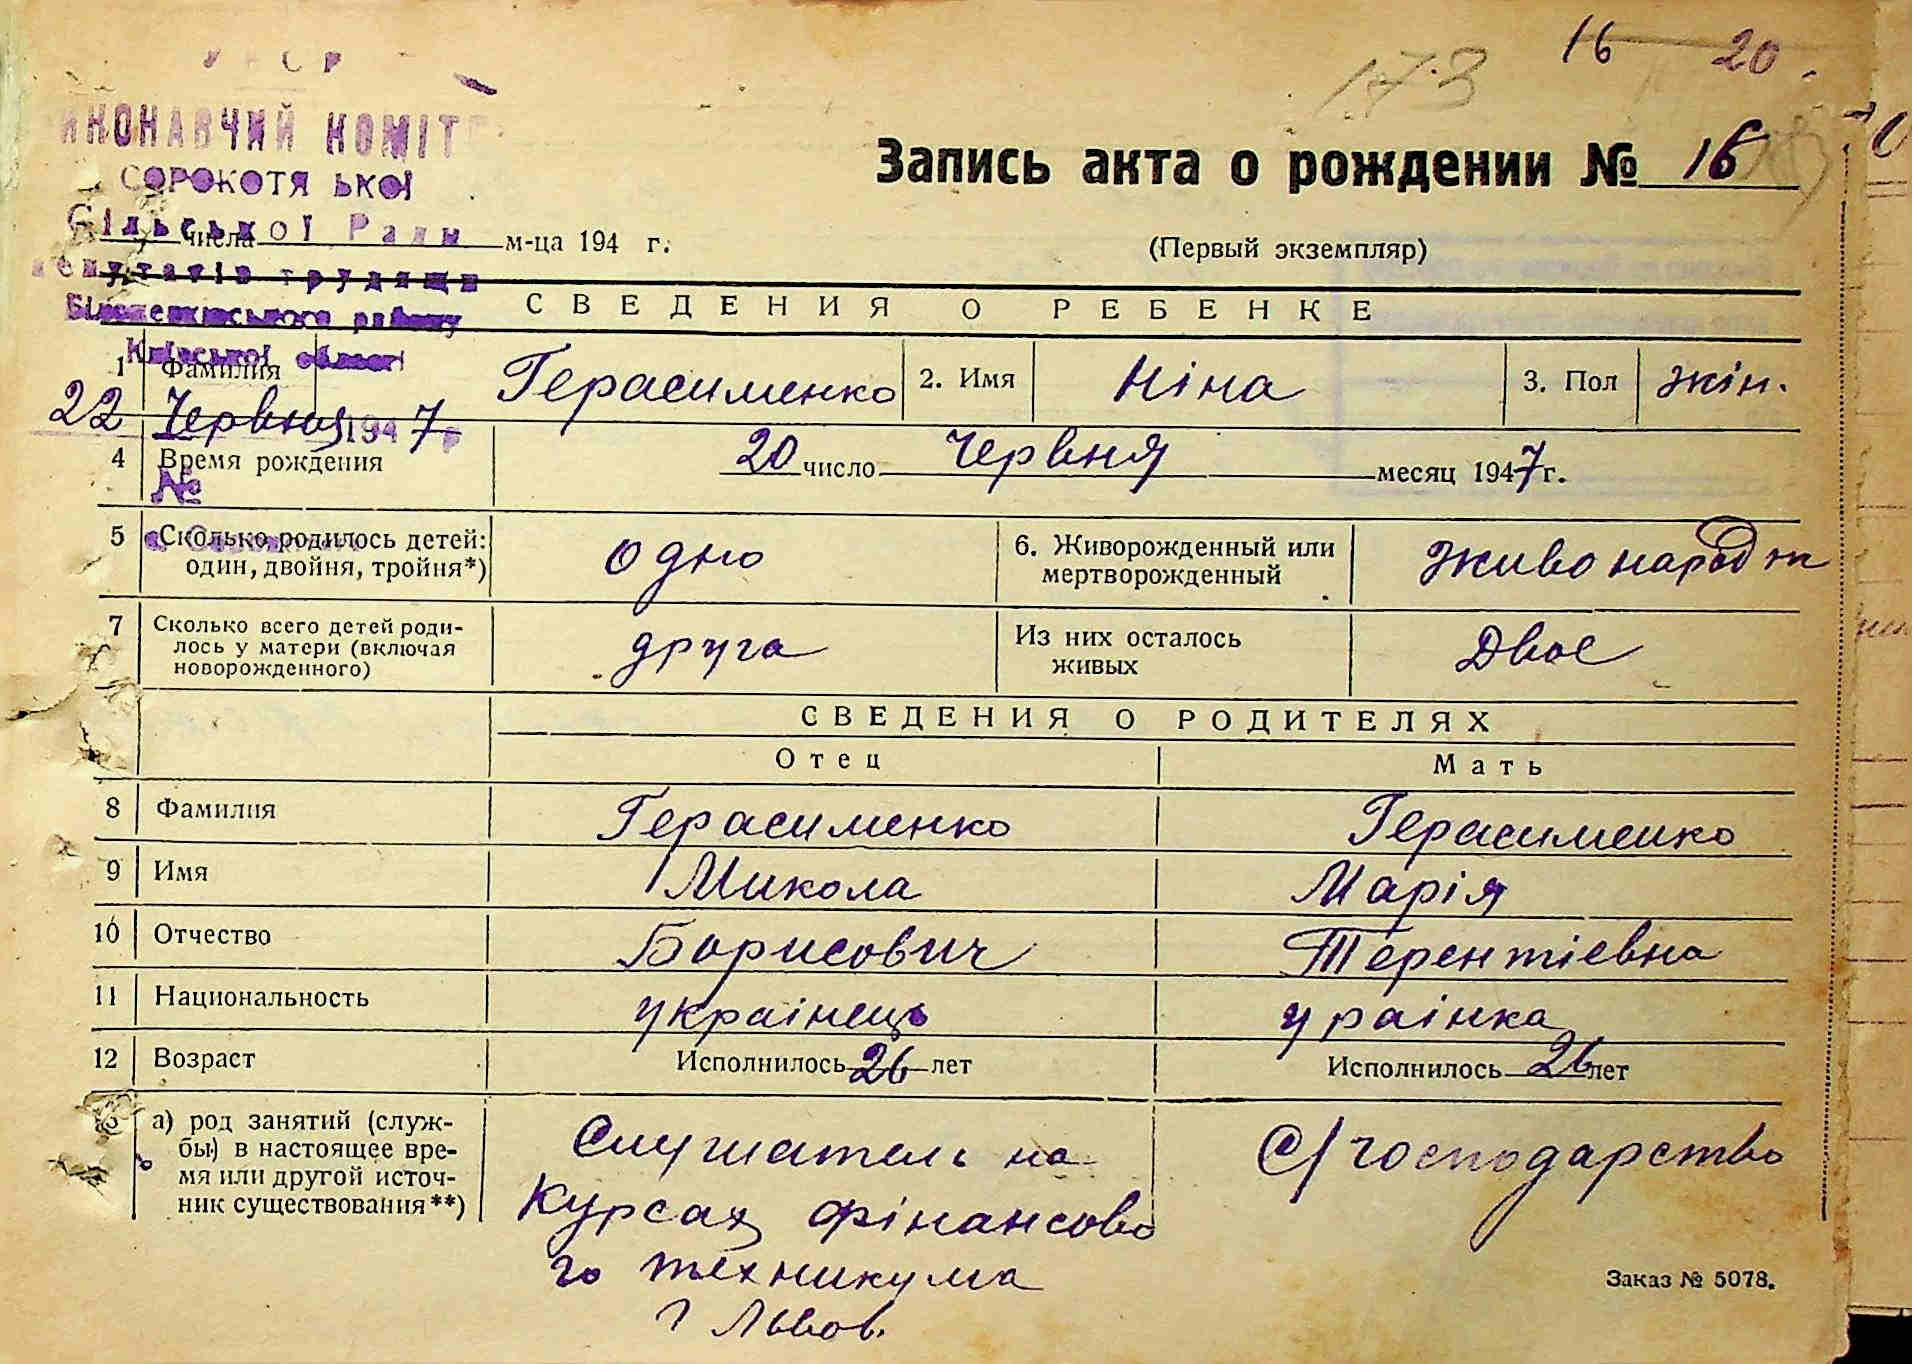 16 20.
173
ИКОНАВЧИЙ КОМІТ
СОРОКОТЯ ЬКОЇ
Сільської Ради
Запись акта о рождении № 16
числа м-ца 194 г.
(Первый экземпляр)
депутатів трудящи
Білоцерківського району
Київської області
22 Червня 1947 р
№
СВЕДЕНИЯ О РЕБЕНКЕ
1 Фамилия Герасименко 2. Имя Ніна 3. Пол жін.
4 Время рождения 20 число Червня месяц 1947 г.
5 Сколько родилось детей: один, двойня, тройня*) одно 6. Живорожденный или мертворожденный Живонародж
7 Сколько всего детей роди-
лось у матери (включая
новорожденного) друга Из них осталось живых Двоє
СВЕДЕНИЯ О РОДИТЕЛЯХ
Отец Мать
8 Фамилия Герасименко Герасименко
9 Имя Микола Марія
10 Отчество Борисович Терентіевна
11 Национальность украінець ураінка
12 Возраст Исполнилось 26 лет Исполнилось 26 лет
а) род занятий (служ-
бы) в настоящее вре-
мя или другой источ-
ник существования**)
Слушатель на
курсах фінансово
го технікума
г Львов.
С/господарство
Заказ № 5078.